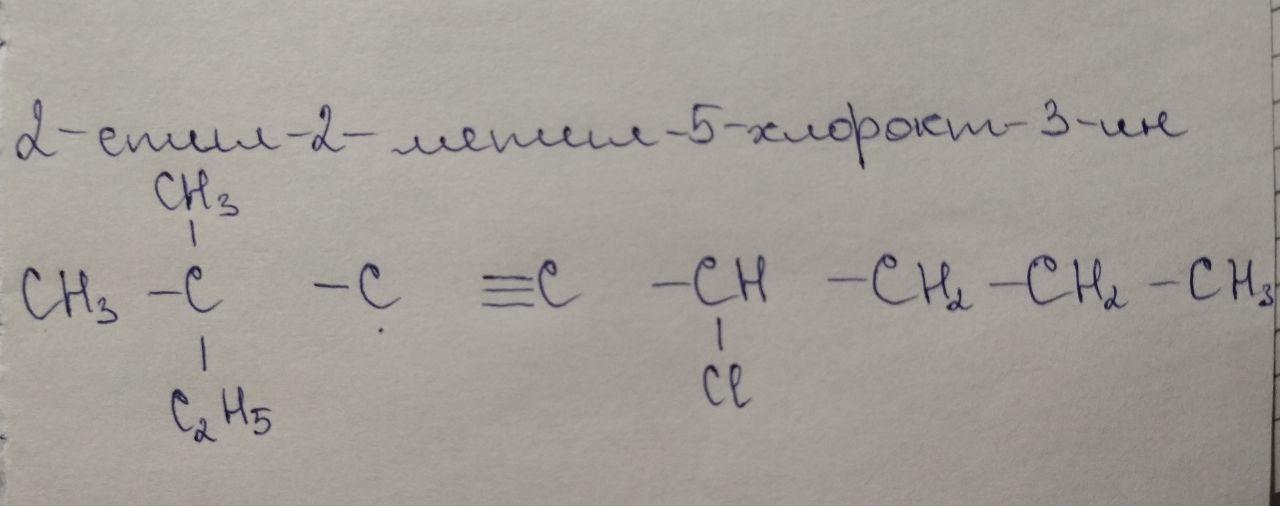 2-етил-2-метил-5-хлорокт-3-ин
CH₃
CH₃ -C -C ≡C -CH -CH₂ -CH₂ -CH₃
C₂H₅ Cl